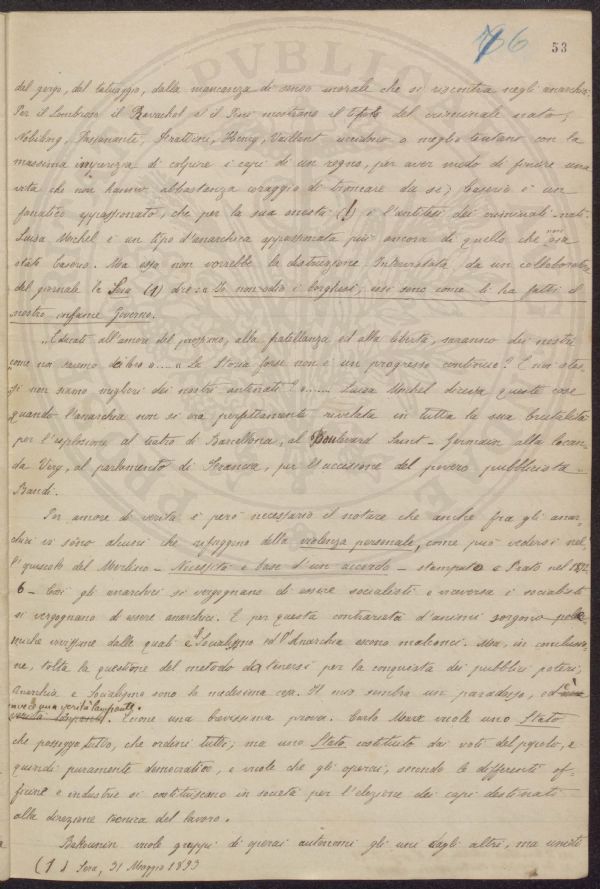 76 53
del gergo, del tatuaggio, dalla mancanza di senso morale che si riscontra negli anarchici.
Per il Lombroso il Ravachol e il Pini mostrano il tipo del criminale nato;
Nobiling, Passanante, Frattini, Henry, Vaillant uccidono o meglio tentano con la
massima di colpire i capi di un regno, per aver modo di finire una
vita che non hanno abbastanza coraggio di troncare da sè; Caserio è un
fanatico appassionato, che per la sua onestà (!) è l'antitesi dei criminali-nati.
Luisa Michel è un tipo d'anarchica appassionata più ancora di quello che non sia
stato Caserio. Ma essa non vorrebbe la distruzione. Intervistata da un collaboratore
del giornale la Sera (1) disse: Io non odio i borghesi; essi sono come li ha fatti il
nostro infame Governo.
„Educati all'amore del prossimo, alla fratellanza ed alla libertà, saranno dei nostri
come noi saremo di loro"..... „La Storia forse non è un progresso continuo? E noi stes-
si non siamo migliori dei nostri antenati?"...... Luisa Michel diceva queste cose
quando l'anarchia non si era perfettamente rivelata in tutta la sua brutalità
per l'esplosione al teatro di Barcellona, al Boulevard Saint-Germain alla locan-
da Very, al parlamento di Francia, per l'uccisione del povero pubblicista
Bandi.
Per amore di verità è però necessario il notare che anche fra gli anar-
chici vi sono alcuni che rifuggono dalla violenza personale, come può vedersi nel-
l'opuscolo del Merlino - Necessità e base d'un accordo - stampato a Prato nel 1892.
6 - Così gli anarchici si vergognano di essere socialisti e viceversa i socialisti
si vergognano di essere anarchici. E per questa contrarietà d'animi sorgono
dalle quali il Socialismo ed l'Anarchia escono malconci. Ma, in conclusio-
ne, tolta la questione del metodo da tenersi per la conquista dei pubblici poteri,
Anarchia e Socialismo sono la medesima cosa. Il mio sembra un paradosso, ed è
invece una verità lampante.
verità lampante. Eccone una brevissima prova. Carlo Marx vuole uno Stato
che possegga tutto, che ordini tutto; ma uno Stato costituito dai voti del popolo, e
quindi puramente democratico, e vuole che gli operai, secondo le differenti of-
ficine e industrie si costituiscano in società per l'elezione dei capi destinati
alla direzione tecnica del lavoro.
Bakounin vuole gruppi di operai autonomi gli uni dagli altri, ma uniti
(1) Sera, 31 Maggio 1893